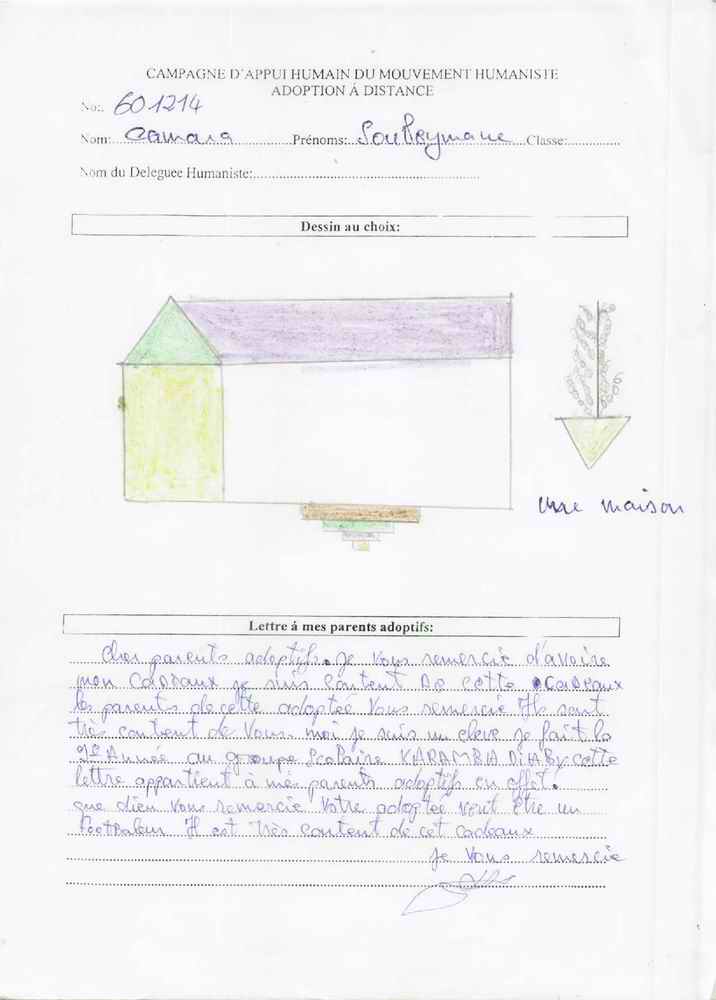 CAMPAGNE D'APPUI HUMAIN DU MOUVEMENT HUMANISTE
ADOPTION Á DISTANCE
No:. 601214
Nom: Camara Prénoms: Souleymane Classe:
Nom du Deleguee Humaniste:
Dessin au choix:
une maison
Lettre á mes parents adoptifs:
cher parents adoptifs. je vous remercie d'avoire
mon Cadeaux je suis Content de cette Cadeaux
les parents de cette adoptée vous remercie Ils sont
très content de vous. moi je suis un eleve je fait la
Année au groupe Scolaire KARAMBA DiABy cette
lettre appartient à mes parents adoptifs en effet.
que dieu vous remercie votre adoptée veut Etre un
Footbaleur Il est très content de cet cadeaux
je vous remercie